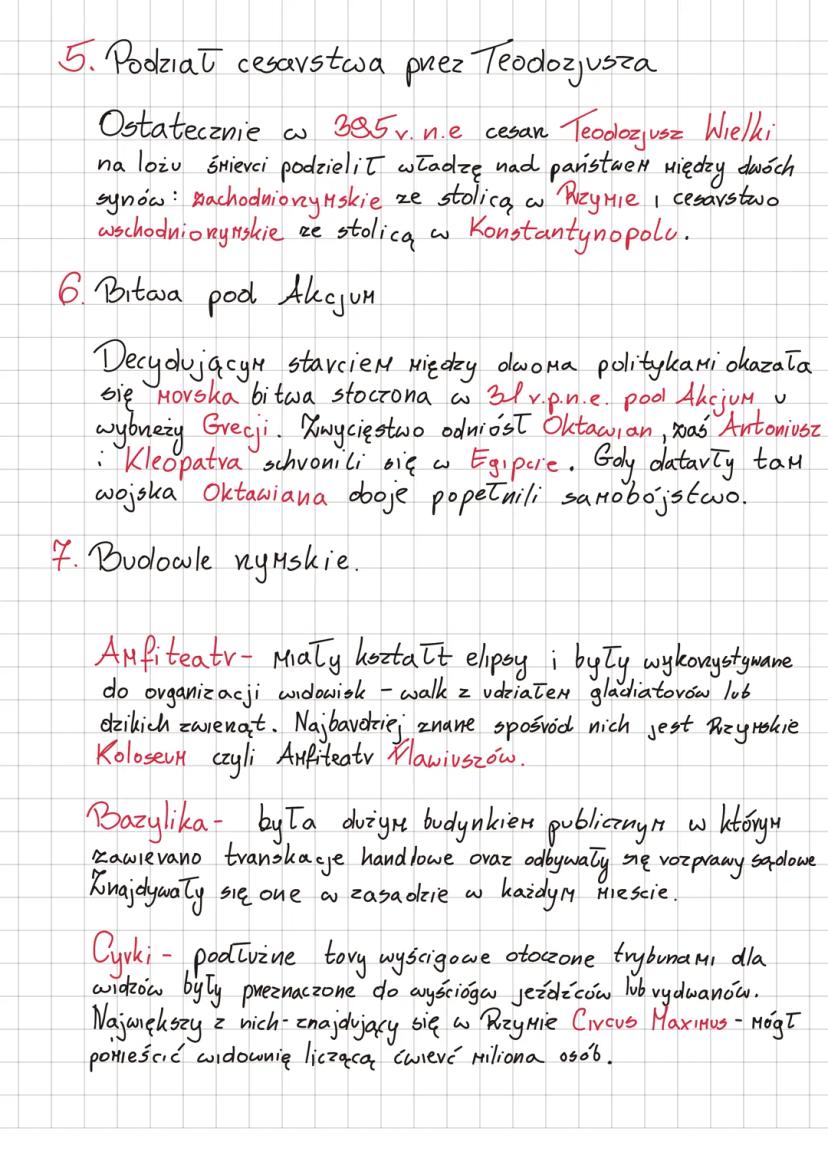 5. Podział cesarstwa przez Teodozjusza
Ostatecznie w 395 r. n.e cesarz Teodozjusz Wielki
na łożu śmierci podzielił władzę nad państwem między dwóch
synów: zachodniorzymskie ze stolicą w Rzymie i cesarstwo
wschodniorzymskie ze stolicą w Konstantynopolu.
6. Bitwa pod Akcjum
Decydującym starciem między dwoma politykami okazała
się morska bitwa stoczona w 31 r.p.n.e. pod Akcjum u
wybrzeży Grecji. Zwycięstwo odniósł Oktawian, zaś Antoniusz
i Kleopatra schronili się w Egipcie. Gdy datarły tam
wojska Oktawiana oboje popełnili samobójstwo.
7. Budowle rzymskie.
Amfiteatr - miały kształt elipsy i były wykorzystywane
do organizacji widowisk - walk z udziałem gladiatorów lub
dzikich zwierząt. Najbardziej znane spośród nich jest Rzymskie
Koloseum czyli Amfiteatr Flawiuszów.
Bazylika - była dużym budynkiem publicznym w którym
zawierano transkacje handlowe oraz odbywały się rozprawy sądowe
Znajdywały się one w zasadzie w każdym mieście.
Cyrki - podłużne tory wyścigowe otoczone trybunami dla
widzów były przeznaczone do wyścigów jeźdźców lub rydwanów.
Największy z nich - znajdujący się w Rzymie Circus Maximus - mógł
pomieścić widownię liczącą ćwierć miliona osób.